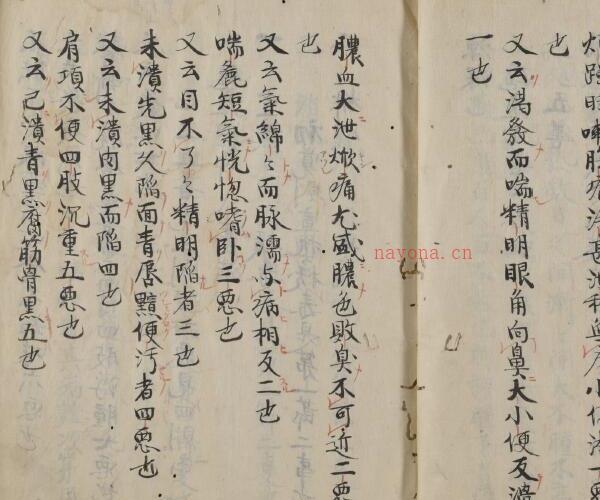 煩躁時嗽腹痛渴甚泄利無度小便淋一惡
也
又云渴發而喘精明眼角向鼻大小便反濃
一也
膿血大泄焮痛尤盛膿色敗臭不可近二惡
也
又云氣綿々而脉濡与病相反二也
喘麁短氣恍惚嗜卧三惡也
又云目不了々精明陷者三也
未潰先黒久陷面青唇黯便汚者四惡也
又云未潰肉黒而陷四也
肩項不便四肢沉重五惡也
又云已潰青黒腐筋骨黒五也
nayona.cn